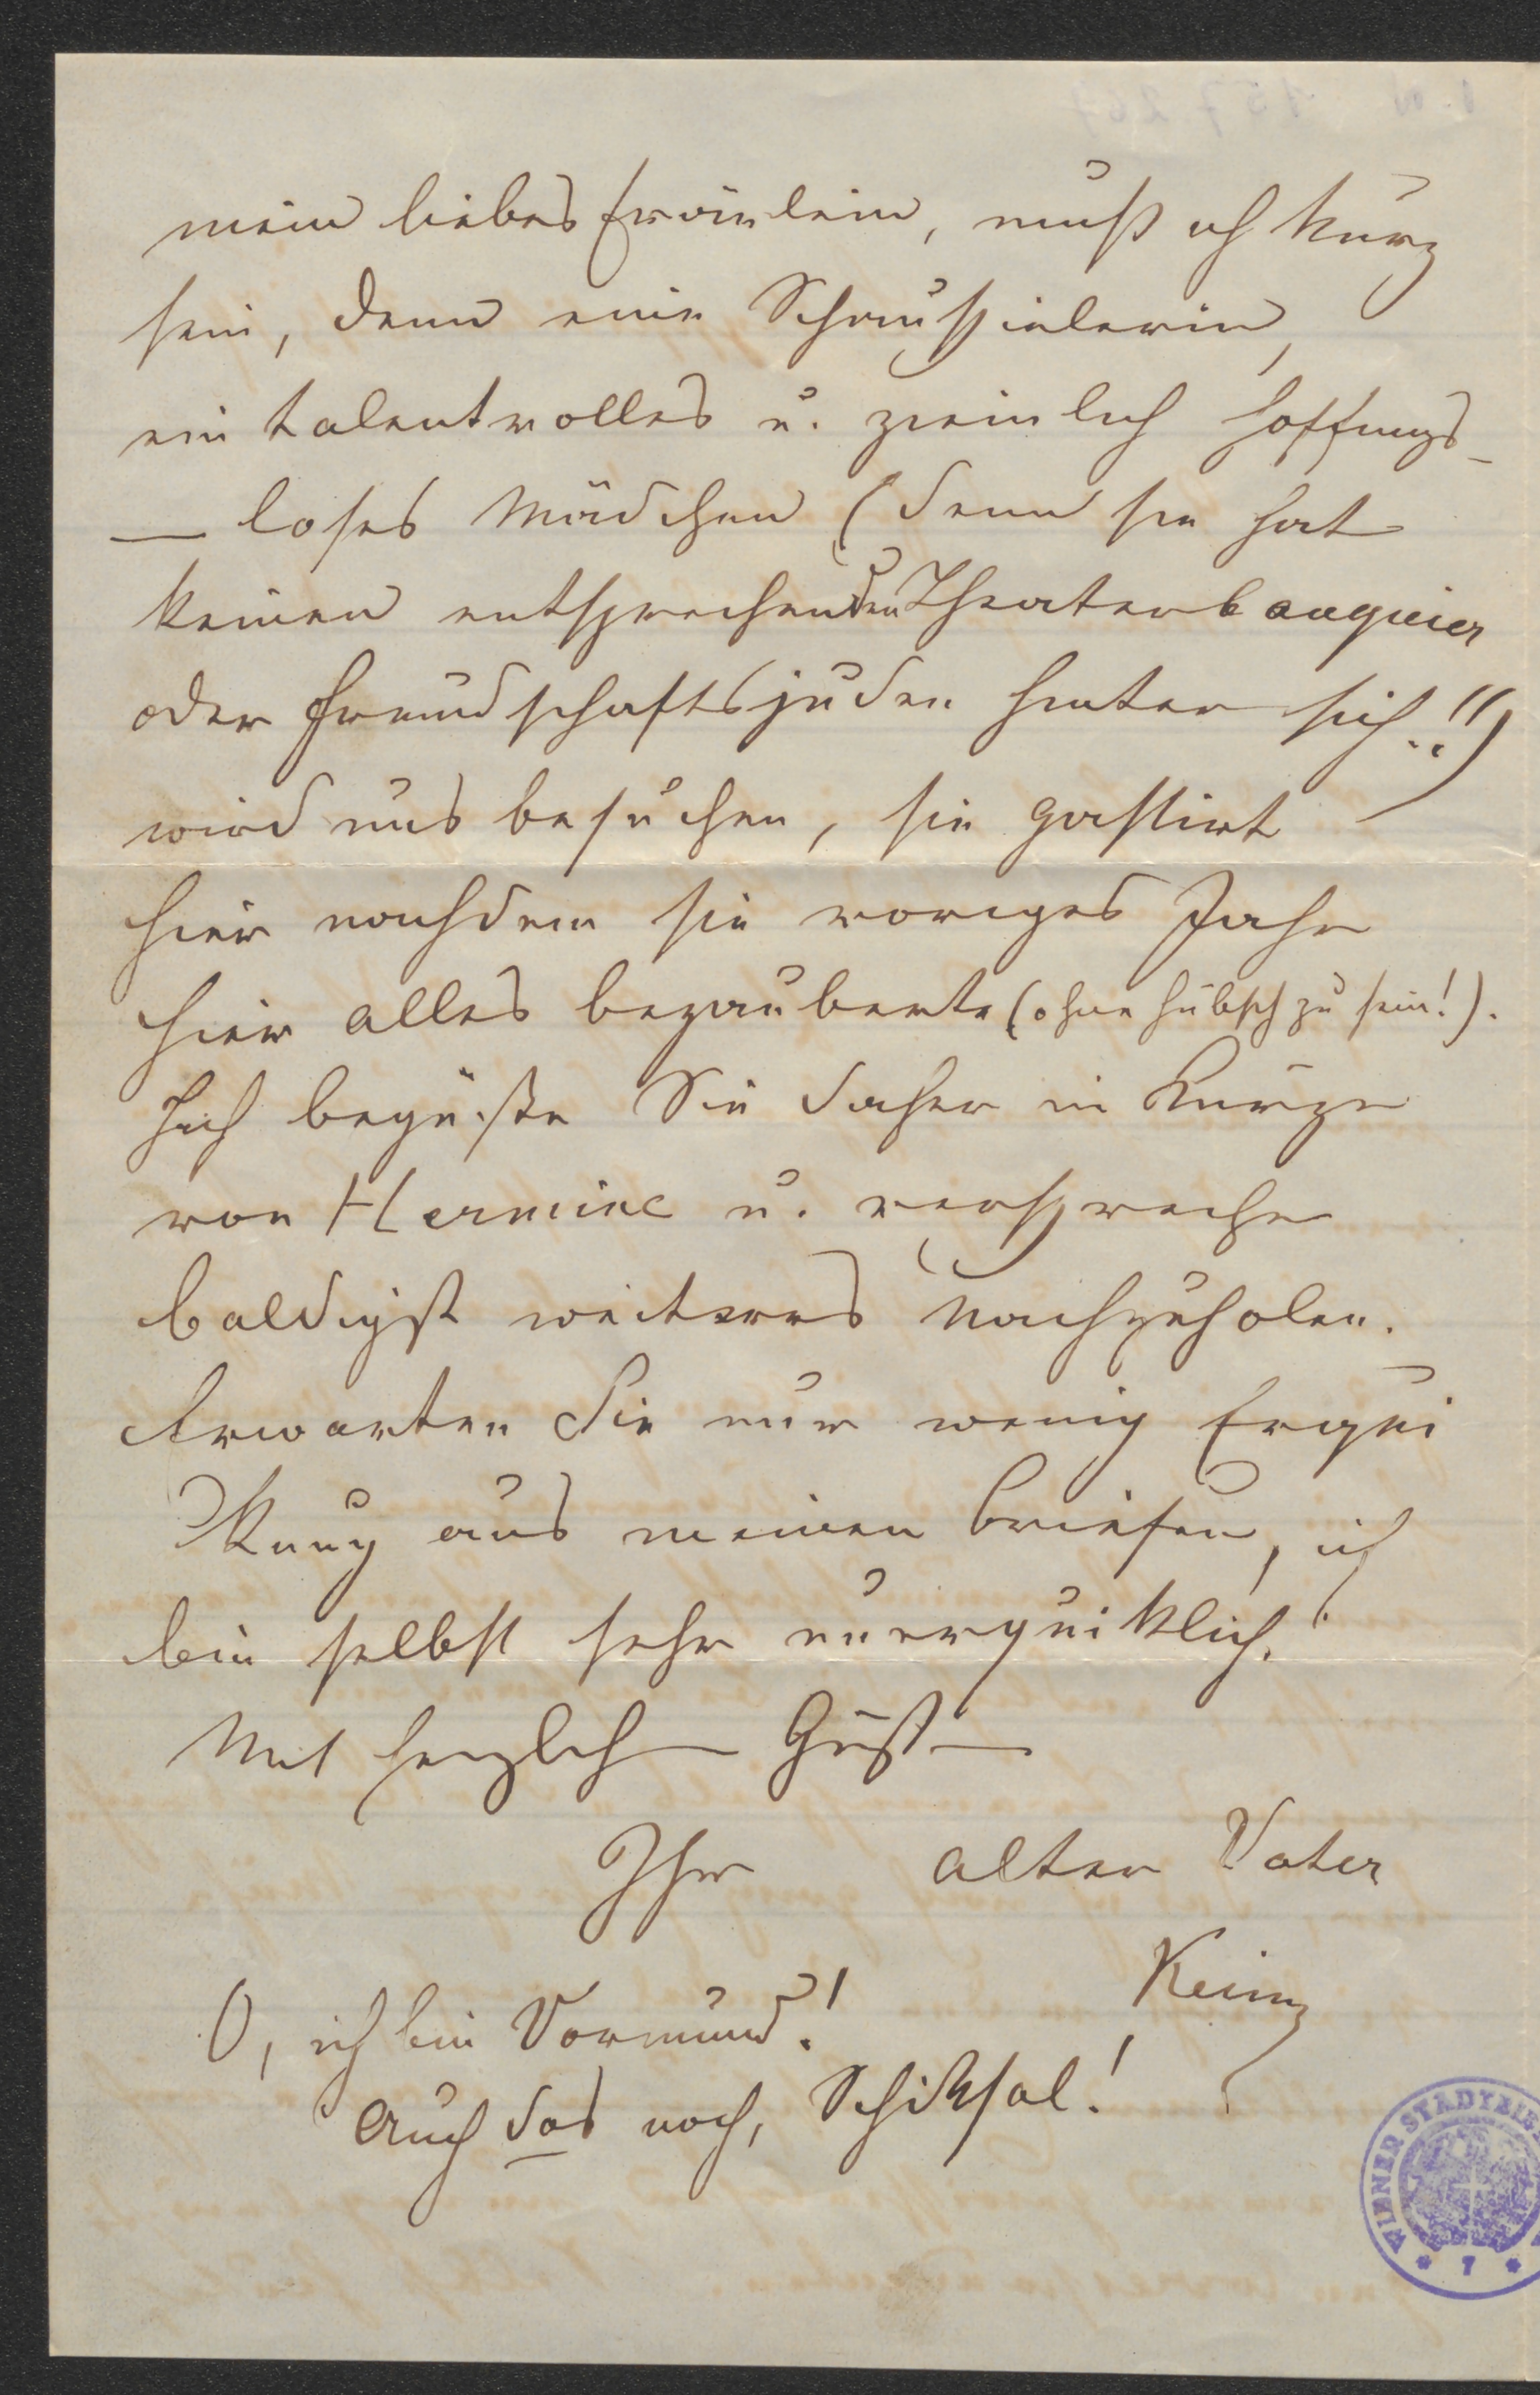 mein liebes Fräulein, muß ich kurz
sein, denn eine Schauspielerin,
ein talentvolles u. ziemlich hoffnungs-
loses Mädchen (denn sie hat
keinen entsprechenden Theaterbanquier
oder Freundschaftsjuden hinter sich!!)
wird uns besuchen, sie gastirt
hier nachdem sie voriges Jahr
hier alles bezauberte (ohne hübsch zu sein!).
Ich begrüße Sie daher in Kürze
von Hermine u. verspreche
baldigst weiteres nachzuholen.
Erwarten Sie nur wenig Erqui
kung aus meinen Briefen, ich
bin selbst sehr unerquiklich.
Mit herzlichen Grüßen
Ihr alter Vater
Keim
O, ich bin Vormund!
Auch das noch, Schiksal!
WIENER STADTBI
* 7 *